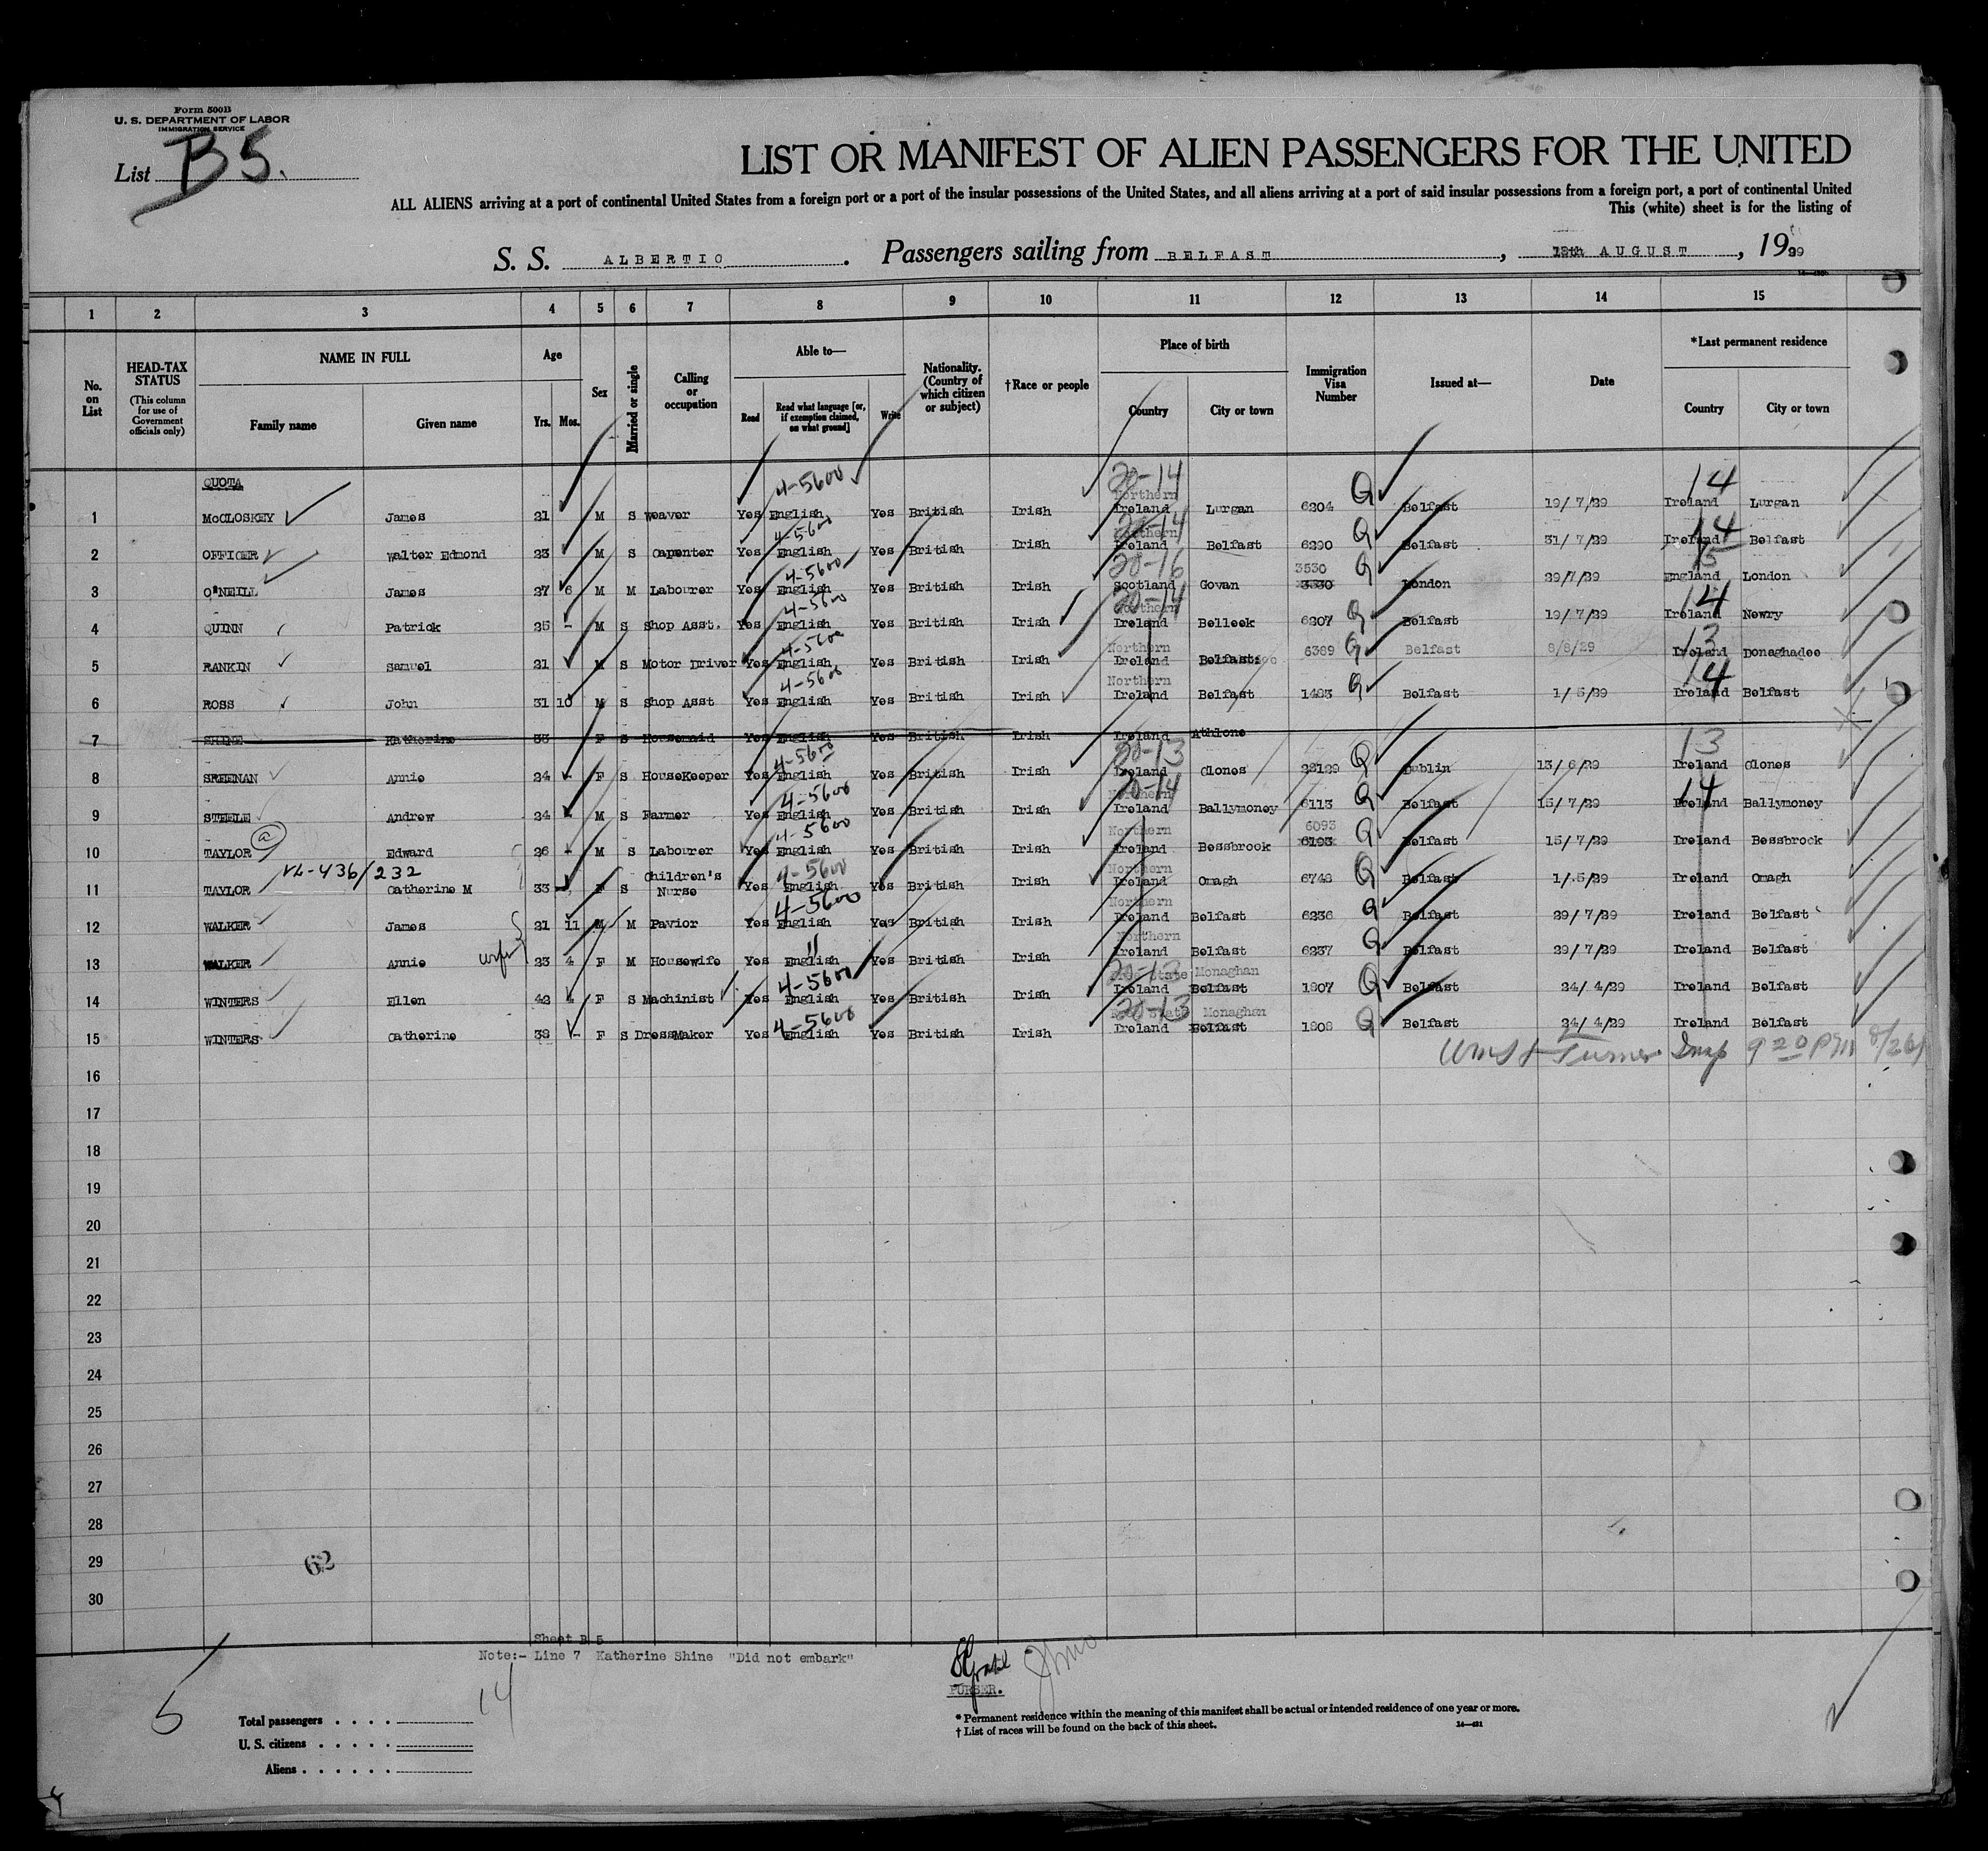 Form 500B
U. S. DEPARTMENT OF LABOR
IMMIGRATION SERVICE
List B5.
LIST OR MANIFEST OF ALIEN PASSENGERS FOR THE UNITED
ALL ALIENS arriving at a port of continental United States from a foreign port or a port of the insular possessions of the United States, and all aliens arriving at a port of said insular possessions from a foreign port, a port of continental United
This (white) sheet is for the listing of
S. S. ALBERTIC. Passengers sailing from BELFAST, AUGUST, 1929
1 2 3 4 5 6 7 8 9 10 11 12 13 14 15
No. on List
HEAD-TAX STATUS (This column for use of Government officials only)
NAME IN FULL Family name Given name
Age Yrs. Mos.
Sex
Married or single
Calling or occupation
Able to— Read Read what language [or, if exemption claimed, on what ground] Write
Nationality. (Country of which citizen or subject)
†Race or people
Place of birth Country City or town
Immigration Visa Number
Issued at—
Date
*Last permanent residence Country City or town
QUOTA 4-5600 20-14 14
1 McCLOSKEY James 21 M S Weaver Yes English Yes British Irish Northern Ireland Lurgan 6204 Q Belfast 19/7/29 Ireland Lurgan
4-5600 20-14 14
2 OFFICER Walter Edmond 23 M S Capenter Yes English Yes British Irish Northern Ireland Belfast 6290 Q Belfast 31/7/29 Ireland Belfast
4-5600 20-16 3530 15
3 O'NEILL James 27 6 M M Labourer Yes English Yes British Irish Scotland Govan Q London 29/7/29 England London
4-5600 20-14 14
4 QUINN Patrick 25 - M S Shop Asst. Yes English Yes British Irish Northern Ireland Belleek 6207 Q Belfast 19/7/29 Ireland Newry
4-5600 13
5 RANKIN Samuel 21 M S Motor Driver Yes English Yes British Irish Northern Ireland 6389 Q Belfast 8/8/29 Ireland Donaghadee
4-5600 14
6 ROSS John 31 10 M S Shop Asst Yes English Yes British Irish Northern Ireland Belfast 1483 Q Belfast 1/5/29 Ireland Belfast
7 SHINE Katherine 33 F S Housemaid Yes English Yes British Irish Ireland Athlone
4-5600 20-13 13
8 SREENAN Annie 24 - F S HouseKeeper Yes English Yes British Irish Ireland Clones Q Dublin 13/6/29 Ireland Clones
4-5600 20-14 14
9 STEELE Andrew 24 - M S Farmer Yes English Yes British Irish Northern Ireland Ballymoney 6113 Q Belfast 15/7/29 Ireland Ballymoney
a 4-5600 6093
10 TAYLOR Edward 26 - M S Labourer Yes English Yes British Irish Northern Ireland Bessbrook 6193 Q Belfast 15/7/29 Ireland Bessbrook
VL-436/232 4-5600
11 TAYLOR Catherine M 33 - F S Children's Nurse Yes English Yes British Irish Northern Ireland Omagh 6748 Q Belfast 1/5/29 Ireland Omagh
4-5600
12 WALKER James 21 11 M M Pavior Yes English Yes British Irish Northern Ireland Belfast 6236 Q Belfast 29/7/29 Ireland Belfast
wife "
13 WALKER Annie 23 4 F M Housewife Yes English Yes British Irish Northern Ireland Belfast 6237 Q Belfast 29/7/29 Ireland Belfast
4-5600 20-13 Free State Monaghan
14 WINTERS Ellen 42 4 F S Machinist Yes English Yes British Irish Ireland Belfast 1807 Q Belfast 24/4/29 Ireland Belfast
4-5600 20-13 Free State Monaghan
15 WINTERS Catherine 38 - F S DressMaker Yes English Yes British Irish Ireland Belfast 1808 Q Belfast 24/4/29 Ireland Belfast
Turner Insp 9 20 PM 8/26
16
17
18
19
20
21
22
23
24
25
26
27
28
29
30
62
Sheet B 5
Note:- Line 7 Katherine Shine "Did not embark"
PURSER.
5
14
Total passengers
U. S. citizens
Aliens
* Permanent residence within the meaning of this manifest shall be actual or intended residence of one year or more.
† List of races will be found on the back of this sheet.
14—421